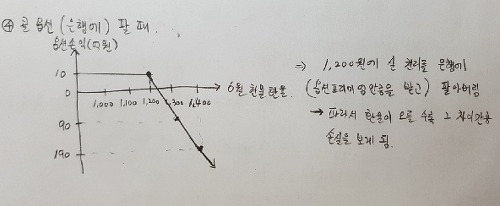 ④ 콜 옵션 (은행에) 팔 때.
옵션손익(억원)
10
0
90
190
1,000 1,100 1,200 1,300 1,400
6월 현물환율.
⇒ 1,200원에 살 권리를 은행에
(옵션프리미엄만큼을 받고) 팔아버림
→ 따라서 환율이 오를 수록 그 차이만큼
손실을 보게 됨.